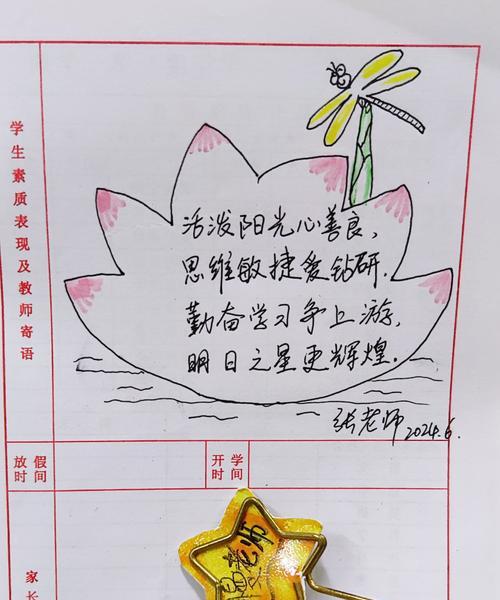 学生素质表现及教师寄语
活泼阳光心善良,
思维敏捷爱钻研.
勤奋学习争上游,
明日之星更辉煌.
张老师 2024.6.
放假时间
开学时间
家长
老师